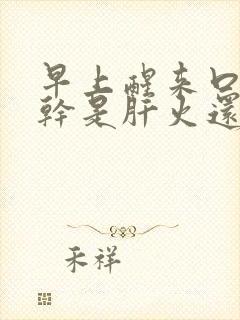 早上醒来口
幹是肝火還
禾祥